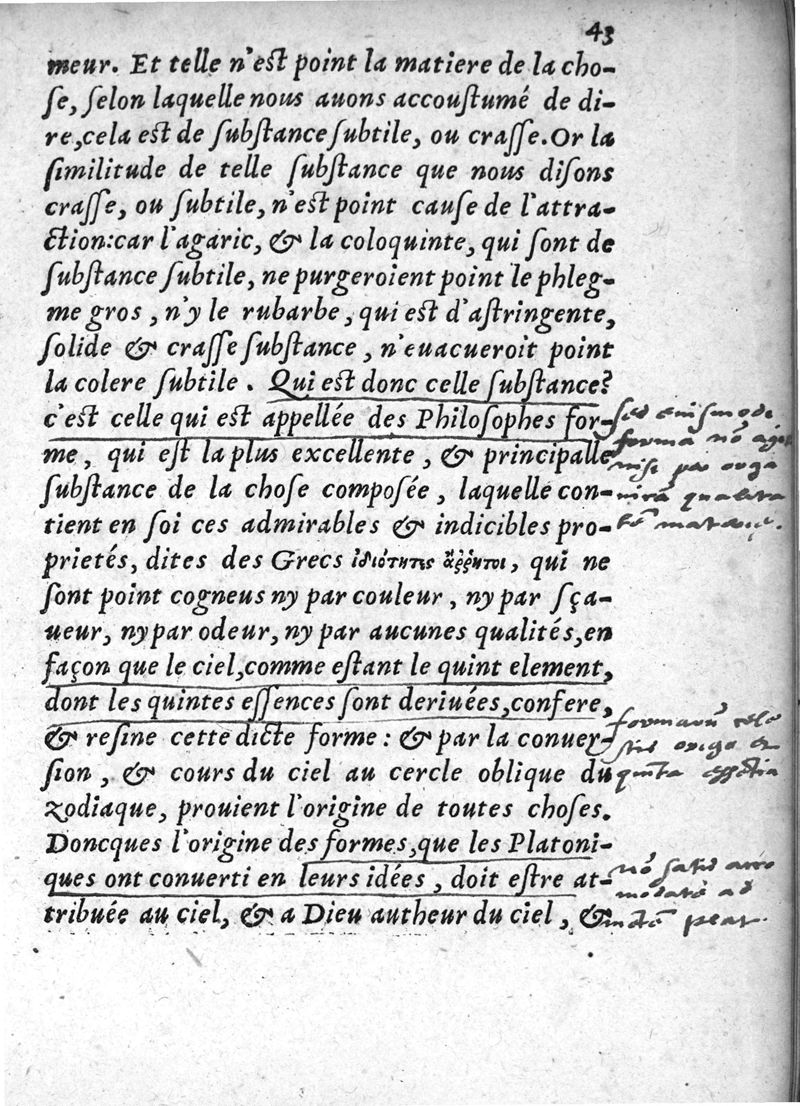 43
meur. Et telle n'est point la matiere de la cho-
se, selon laquelle nous auons accoustumé de di-
re, cela est de substance subtile, ou crasse. Or la
similitude de telle substance que nous disons
crasse, ou subtile, n'est point cause de l'attra-
ction: car l'agaric, & la coloquinte, qui sont de
substance subtile, ne purgeroient point le phleg-
me gros, n'y le rubarbe, qui est d'astringente,
solide & crasse substance, n'euacueroit point
la colere subtile. Qui est donc celle substance?
c'est celle qui est appellée des Philosophes for-
me, qui est la plus excellente, & principalle
substance de la chose composée, laquelle con-
tient en soi ces admirables & indicibles pro-
prietés, dites des Grecs ἰδιότητες ἄῤῥητοι, qui ne
sont point cogneus ny par couleur, ny par sça-
ueur, ny par odeur, ny par aucunes qualités, en
façon que le ciel, comme estant le quint element,
dont les quintes essences sont deriuées, confere,
& resine cette dicte forme: & par la conuer-
sion, & cours du ciel au cercle oblique du
zodiaque, prouient l'origine de toutes choses.
Doncques l'origine des formes, que les Platoni-
ques ont conuerti en leurs idées, doit estre at-
tribuée au ciel, & a Dieu autheur du ciel, &
sed eiusmodi
forma nō
nisi per
formarū cele
stis origo et
quīta essētia
nō satis acco
modatè ad